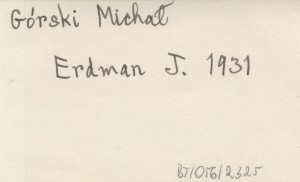 Górski Michał
Erdman J. 1931
BT/056/2325